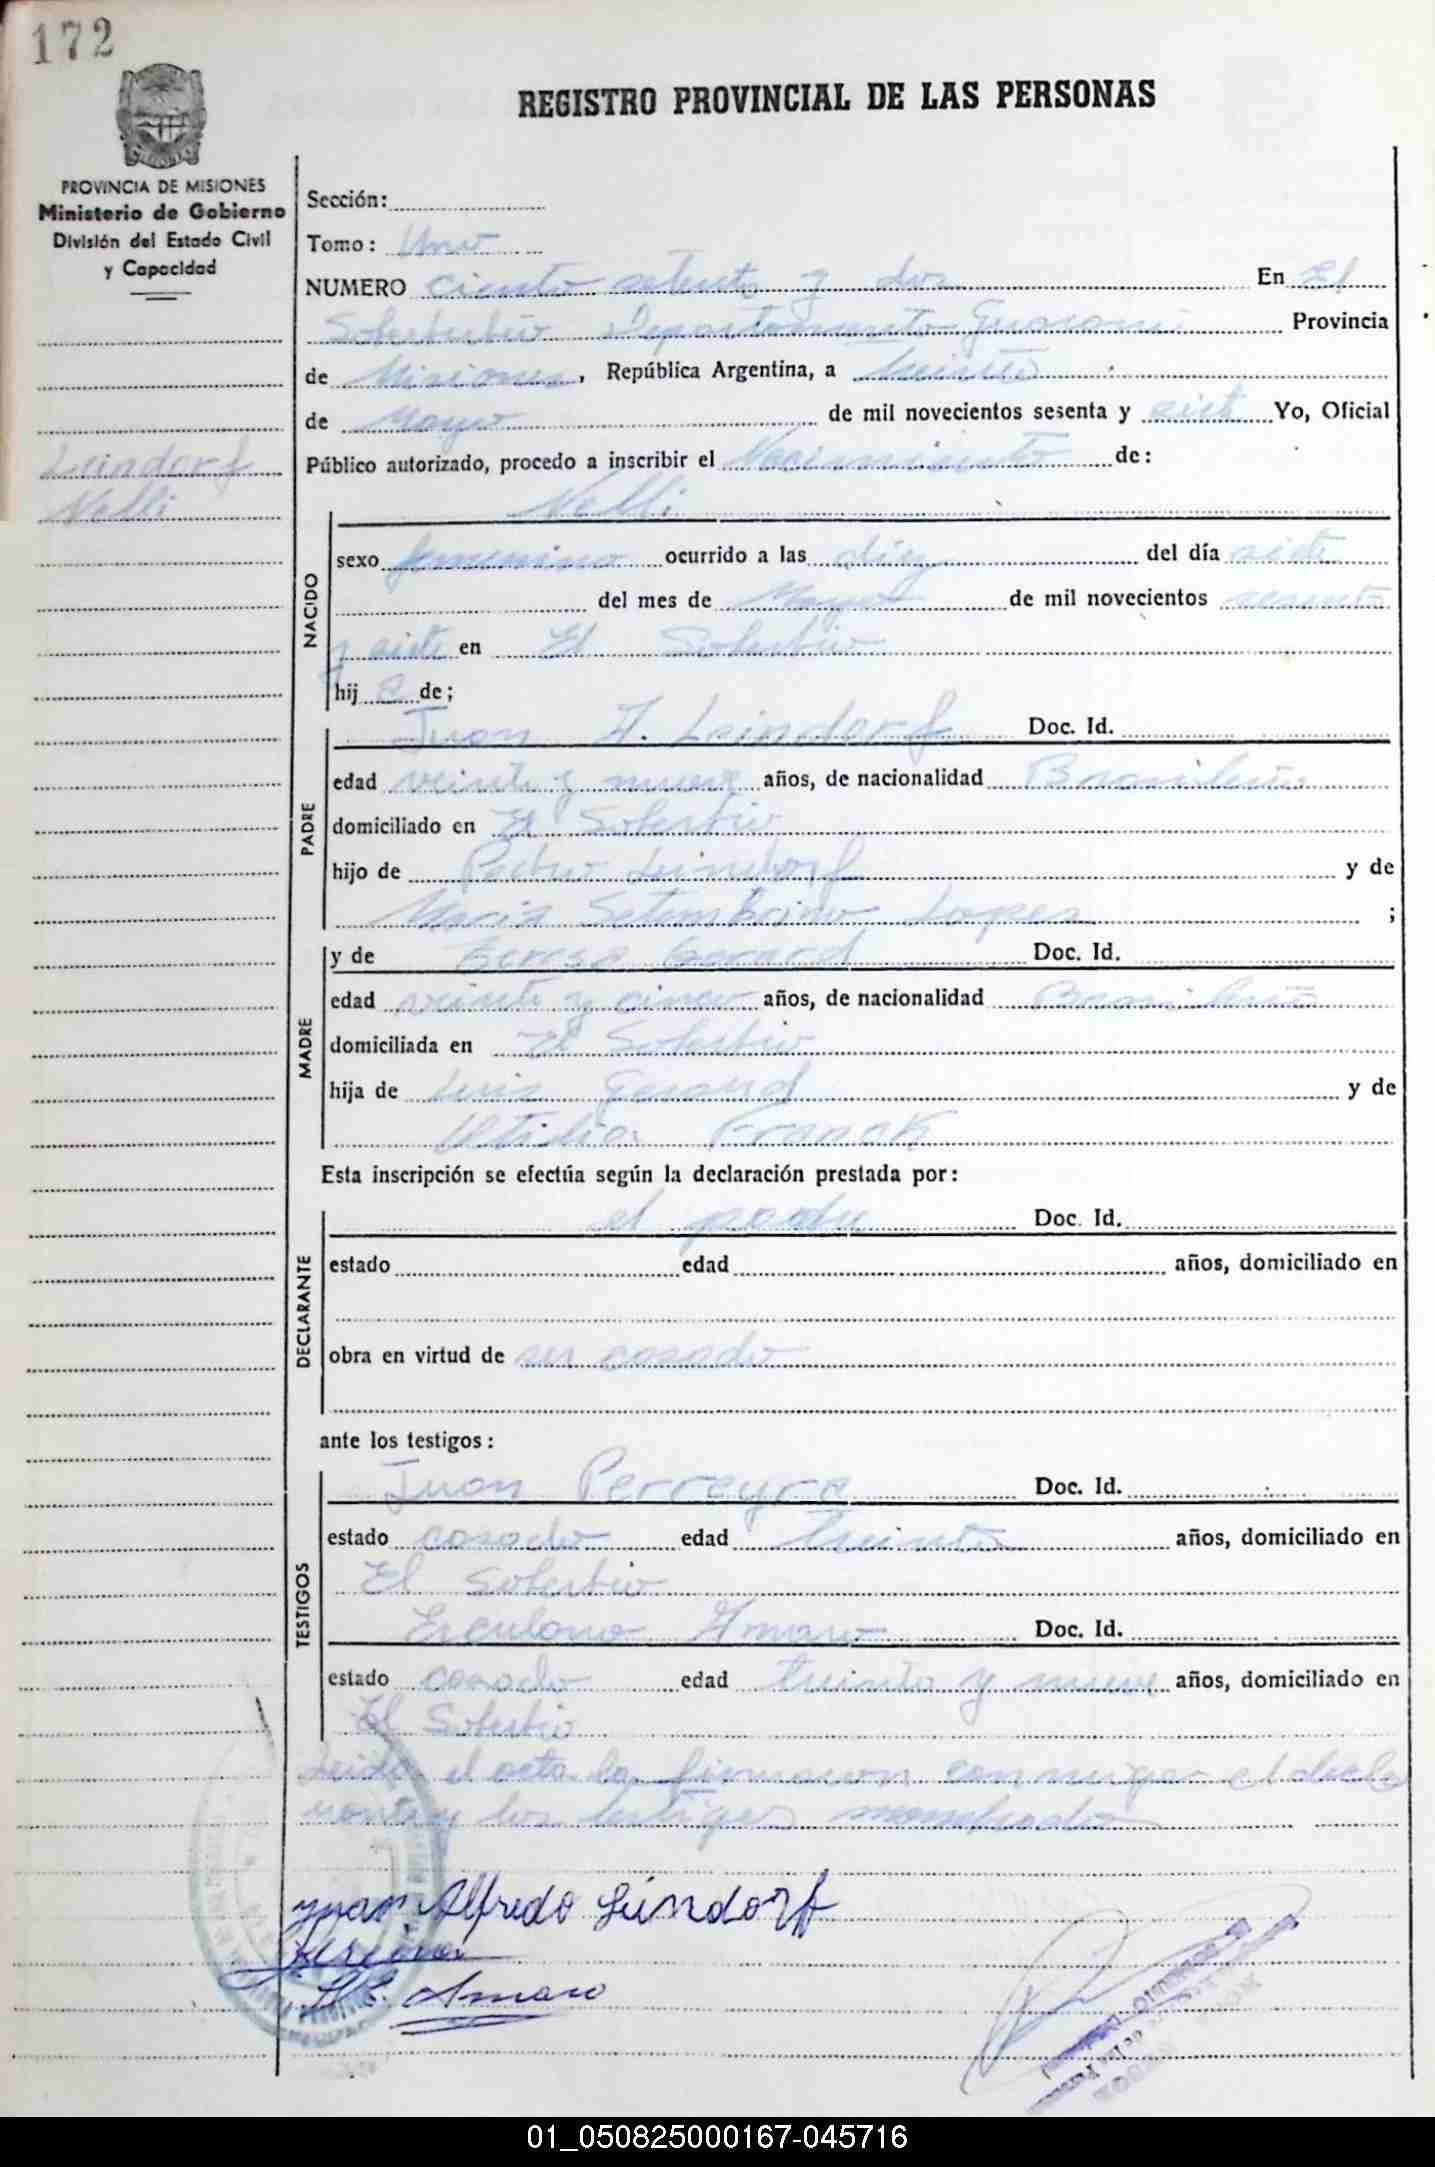 172
REGISTRO PROVINCIAL DE LAS PERSONAS
PROVINCIA DE MISIONES
Ministerio de Gobierno
División del Estado Civil
y Capacidad
Leindorf
Nelli
Sección:
Tomo: Uno
NUMERO ciento setenta y dos En El
Soberbio Departamento Guarani Provincia
de Misiones, República Argentina, a treinta
de Mayo de mil novecientos sesenta y siete Yo, Oficial
Público autorizado, procedo a inscribir el Nacimiento de:
Nelli
NACIDO
sexo femenino ocurrido a las diez del día siete
del mes de Mayo de mil novecientos sesenta
y siete en El Soberbio
hij a de;
PADRE
Juan A. Leindorf Doc. Id.
edad veinte y nueve años, de nacionalidad Brasileña
domiciliado en El Soberbio
hijo de Pedro Leindorf y de
Maria Setembrino Lopes ;
MADRE
y de Teresa Gerard Doc. Id.
edad veinte y cinco años, de nacionalidad Brasileña
domiciliada en El Soberbio
hija de Luis Gerard y de
Franak
Esta inscripción se efectúa según la declaración prestada por:
DECLARANTE
el padre Doc. Id.
estado edad años, domiciliado en
obra en virtud de ser casado
ante los testigos:
TESTIGOS
Juan Perreyra Doc. Id.
estado casado edad treinta años, domiciliado en
El Soberbio
Erculano Amaro Doc. Id.
estado casado edad treinta y nueve años, domiciliado en
El Soberbio
Leida el acta la firmaron conmigo el decla
rante y los testigos mencionados
Juan Alfredo Leindorf
Amaro
01_050825000167-045716